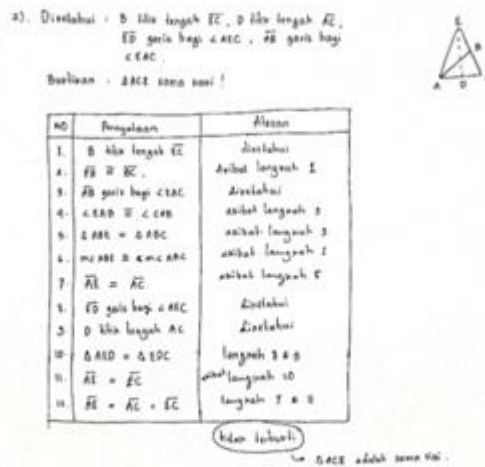 2). Diketahui : B titik tengah EC, D titik tengah AC,
ED garis bagi ∠AEC, AB garis bagi
∠EAC.
Buktikan : ΔACE sama sisi !
E
B
A D
NO Pernyataan Alasan
1. B titik tengah EC diketahui
2. EB ≅ BC. Akibat langkah 1
3. AB garis bagi ∠EAC diketahui
4. ∠EAB ≅ ∠CAB akibat langkah 3
5. Δ ABE ≅ Δ ABC akibat langkah
6. m∠ABE ≅ m∠ABC akibat langkah
7. AE ≅ AC akibat langkah 5
8. ED garis bagi ∠AEC diketahui
9 D titik tengah AC diketahui
10. Δ AED ≅ Δ EDC langkah 8 & 9
11. AE ≅ EC akibat langkah 10
12. AE ≅ AC ≅ EC langkah 7 &
terbukti
↳ ΔACE adalah sama sisi.